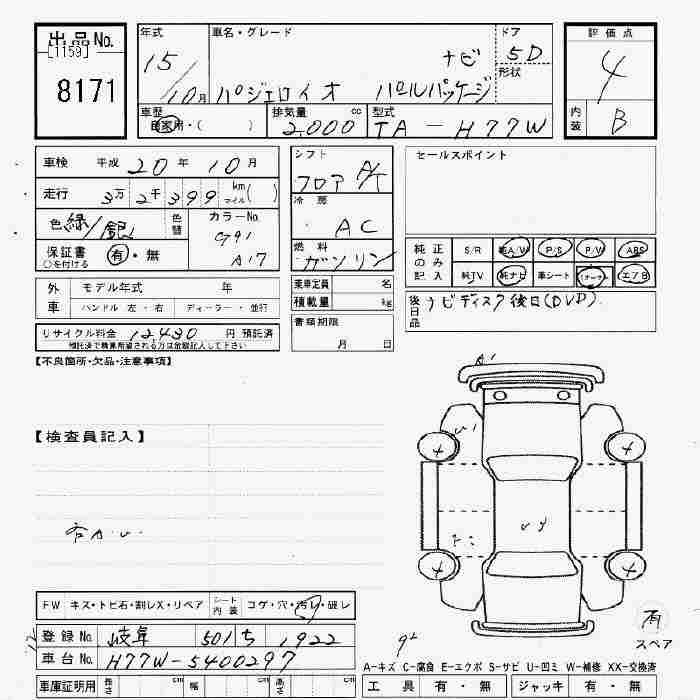 出品No.
[1159]
8171
年式 15/10月
車名・グレード パジェロイオ ナビ パールパッケージ
ドア 5D
形状
評価点 4
内装 B
車歴 自家用・( )
排気量 2,000 cc
型式 TA-H77W
車検 平成 20年 10月
走行 3万2千399 km マイル( )
色 緑/銀 色替
カラーNo. A17
保証書 有・無
○を付ける
シフト フロア A/T
冷房 AC
燃料 ガソリン
セールスポイント
純正のみ記入 S/R 純A/W P/S P/V ABS
純TV 純ナビ 車シート エアB
外車 モデル年式 年
ハンドル 左・右 ディーラー・並行
乗車定員 名
積載量 kg
後日品 ナビディスク後日(DVD)
リサイクル料金 12,430 円 預託済
預託済で精算希望される方は金額記入して下さい
書類期限 月 日
【不良箇所・欠品・注意事項】
A1
【検査員記入】
FW キズ・トビ石・割レX・リペア シート内装 コゲ・穴・汚レ・破レ
登録No. 岐阜 501 ち 1922
車台No. H77W-5400297
有
スペア
A-キズ C-腐食 E-エクボ S-サビ U-凹ミ W-補修 XX-交換済
車庫証明用 長さ cm 幅 cm 高さ cm
工具 有・無 ジャッキ 有・無